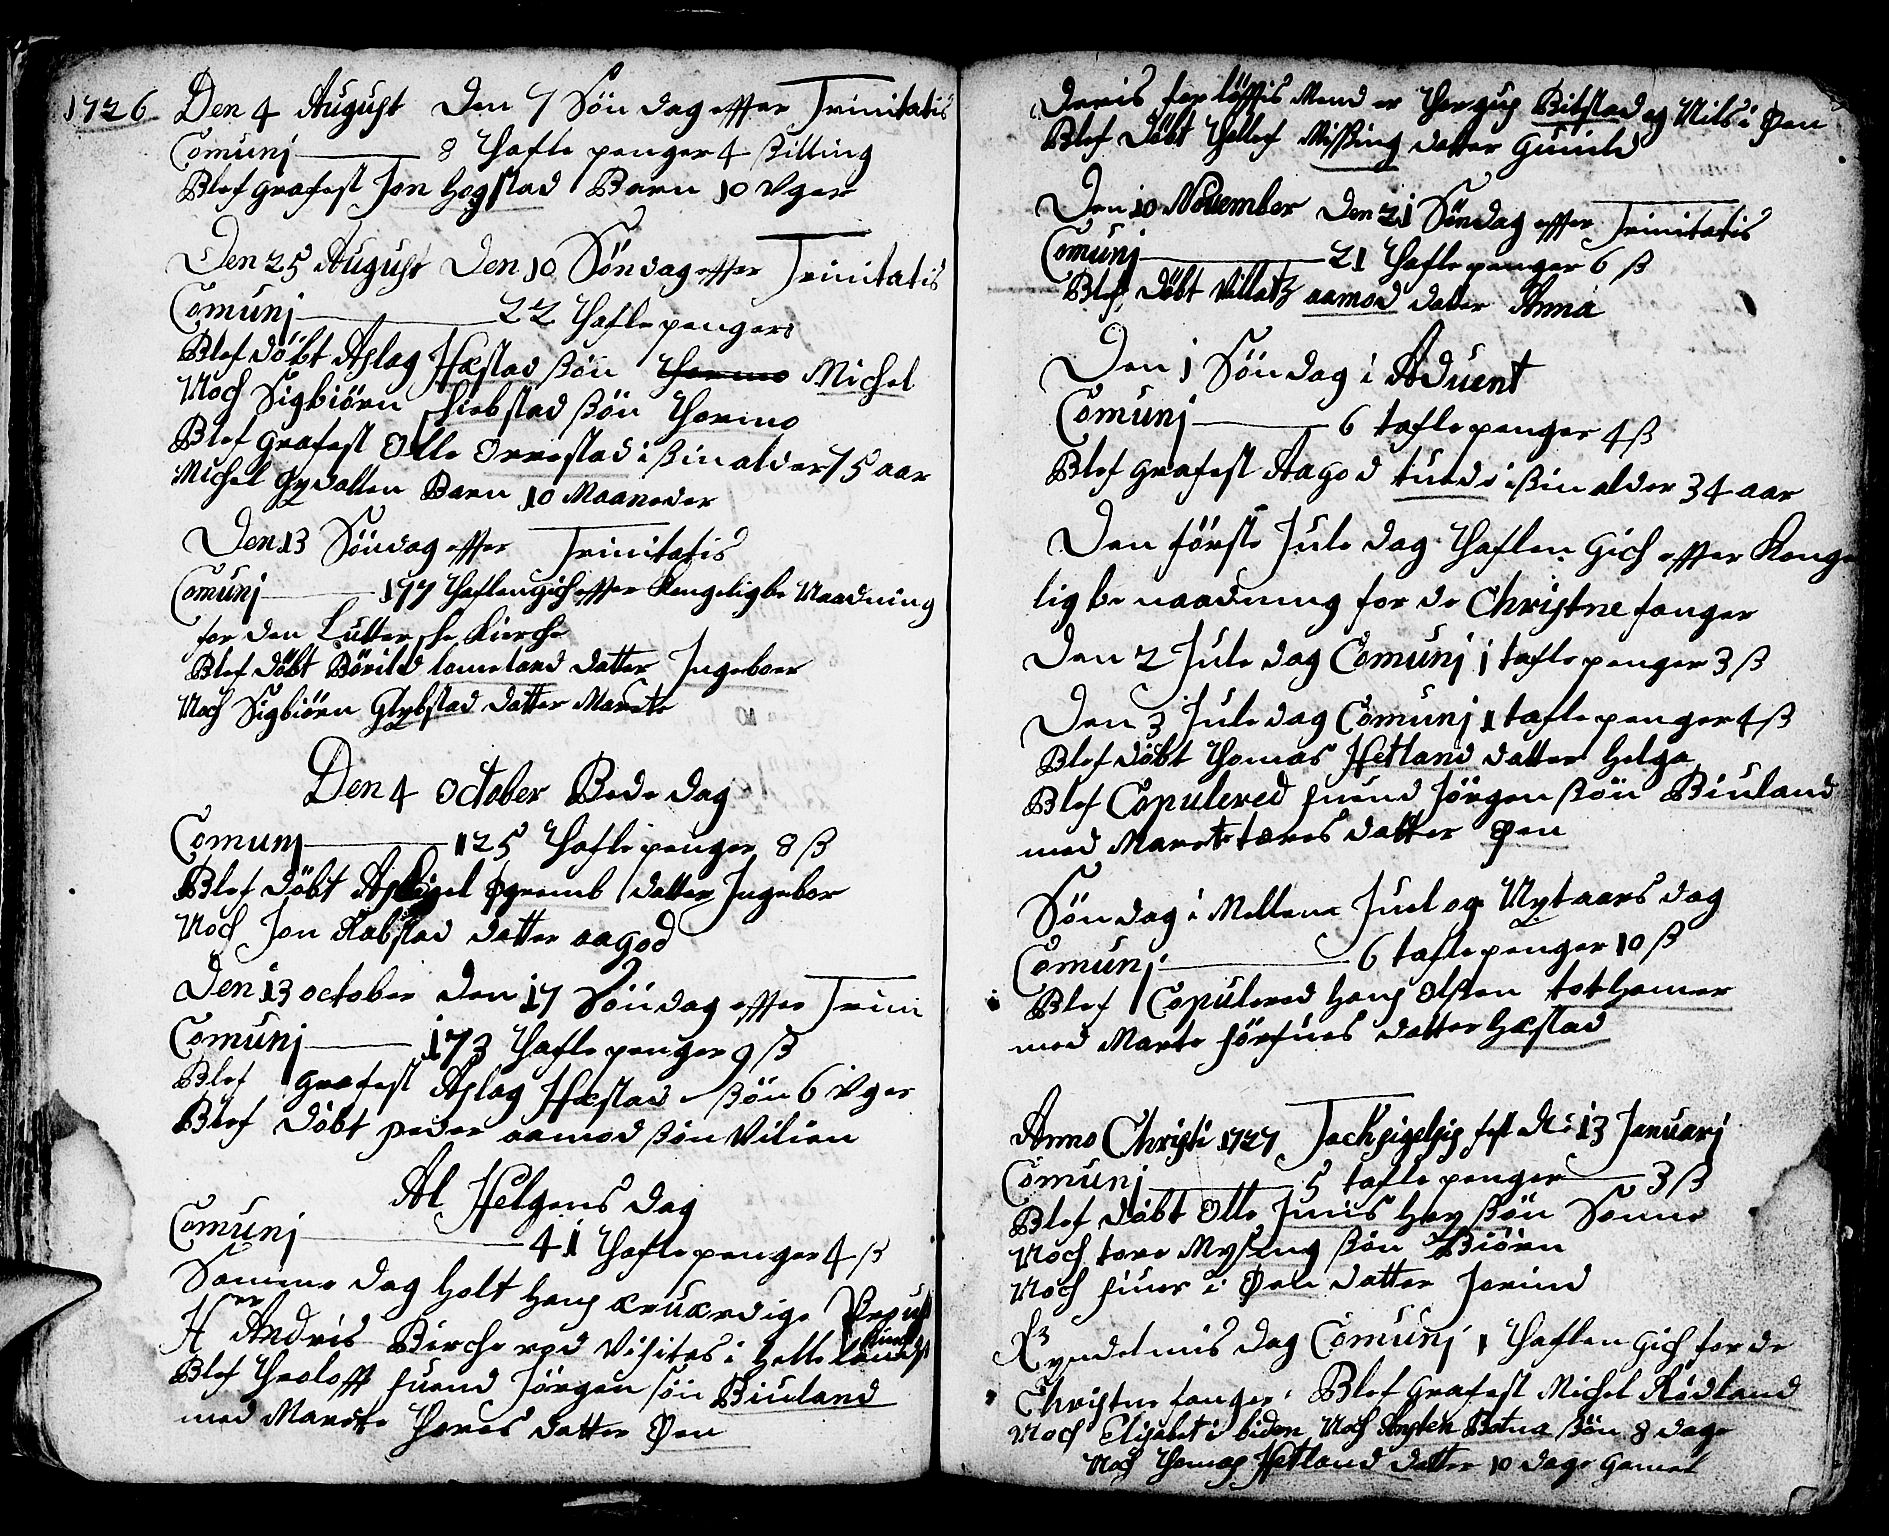 1726 Den 4 August Den 7 Söndag effter Trinitatis
Comunj 8 thafle penger 4 skilling
Blef grafest Jon Hogstad Barn 10 Vger
Den 25 August Den 10 Söndag effter Trinitatis
Comunj 22 thafle penger
Blef döbt Aslag Hæstad sön Thormo Michel
Noch Sigbiörn sön Thormo
Blef grafest Olle Orrestad i sin alder 75 aar
Michel Gydallen Barn 10 Maaneder
Den 13 Söndag effter Trinitatis
Comunj 177 thaflen gich effter Kongelig be naadning
for den Lutterske Kierche
Blef döbt Börild lomeland datter Jngeboer
Noch Sigbiörn Glybstad datter Marete
Den 4 October Bede dag
Comunj 125 thafle penger 8 ß
Blef döbt datter Jngebor
Noch Jon Rabstad datter aagod
Den 13 october den 17 Söndag effter Trini
Comunj 173 thafle penger 9 ß
Blef grafest Aslag Hæstad sön 6 Vger
Blef döbt peder aamod sön Vilien
Al Helgens dag
Comunj 41 thafle penger 4 ß
Samme dag holt hans æruærdige Proust
Hr Andris Bircherod Visitas i Hellelands
Blef throloff suend Jörgen sön Biuland
med Marete thores datter Øen
Deris forlöffis Mend er Bilstad og Nils i Øen
Blef döbt thellef Missing datter Gunild
Den 10 November Den 21 Söndag effter Trinitatis
Comunj 21 thafle penger 6 ß
Blef döbt Villatz aamod datter Anna
Den 1 Söndag i Aduent
Comunj 6 tafle penger 4 ß
Blef grafest Aagod tunde i sin alder 34 aar
Den förste Jule dag thaflen gich effter Konge
lig be naadning for de Christne fanger
Den 2 Jule dag Comunj 1 tafle penger 3 ß
Den 3 Jule dag Comunj 1 tafle penger 4 ß
Blef döbt thomas Hetland datter helga
Blef Copulered suend Jörgen sön Biuland
med Marete tores datter Øen
Söndag i Mellem Juel og Nytaars dag
Comunj 6 tafle penger 10 ß
Blef Copulered hans olsen tothamer
med Marte datter Hæstad
Anno Christi 1727 fest d: 13 Januarj
Comunj 5 tafle penger 3 ß
Blef döbt Olle sön Sonne
Noch tore Mysing sön Biörn
Noch siuer i Øen datter Jorind
Kyndelmis dag Comunj 1 thaflen gich for de
Christne fanger. Blef grafest Michel Rödland
Noch Elisabet i liden Noch Botna sön 8 dage
Noch thomas Hetland datter 10 dage gamel